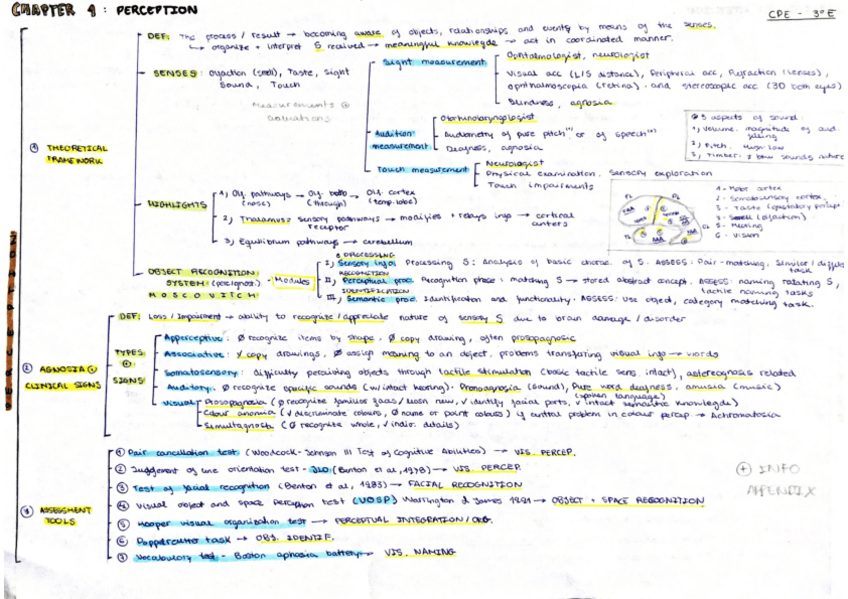 CHAPTER 1: PERCEPTION
CPE - 3ºE
PERCEPTION
① THEORETICAL FRAMEWORK
DEF: The process / result → becoming aware of objects, relationships and events by means of the senses.
↳ organize + interpret S recived → meaningful knowlegde → act in coordinated manner.
SENSES: Olfaction (smell), Taste, Sight
Sound, Touch
Measurements @
Sight measurement
Ophtalmologist, neurologist
Visual acc (L/S distance), Peripheral acc, Refraction (lenses),
ophthalmoscopia (retina). and stereoscopic acc (3D both eyes)
Blindness, agnosia
Audition measurement
Otorhinolaryngologist
Audiometry of pure pitch or of speech
Deafness, agnosia
3 aspects of sound:
1, Volume: magnitude of
2, Pitch: high/low
3, Timber:
Touch measurement
Neurologist
Physical examination. Sensory exploration
Touch impairments
HIGHLIGHTS
1, Olf. pathways → Olf. bulb → Olf. cortex
(nose) (through) (temp. lobe)
2, Thalamus: sensory pathways → modifies + relays info → cortical
receptor centers
3, Equilibrium pathways → cerebellum
1 - Motor cortex
2 - Somatosensory cortex
3 - Taste
4 - Smell (olfaction)
5 - Hearing
6 - Vision
OBJECT RECOGNITION
SYSTEM
MOSCOVITCH
Modules
PROCESSING
I, Sensory info: Processing S: Analysis of basic charac. of S. ASSESS: Pair-matching.
task
RECOGNITION
II, Perceptual proc. Recognition phase: matching S → stored abstract concept. ASSESS: naming rotating S,
tactile naming tasks
IDENTIFICATION
III, Semantic proc. Identification and functionality. ASSESS: use object, category matching task.
② AGNOSIA
CLINICAL SIGNS
DEF: Loss / Impairment → ability to recognize / appreciate nature of sensory S due to brain damage / disorder
TYPES
+
SIGNS
Apperceptive: Ø recognize items by shape, Ø copy drawing, often prosopagnosic
Associative: ✓ copy drawings, Ø assign meaning to an object, problems translating visual info → words
Somatosensory: difficulty percieving objects through tactile stimulation (basic tactile sens. intact), astereognosis related
Auditory: Ø recognize specific sounds (w/intact hearing). Phonagnosia (sound), Pure word deafness, amusia (music)
(spoken language)
Visual
Prosopagnosia (Ø recognize familiar faces / learn new, ✓ identify facial parts, ✓ intact semantic knowlegde)
Colour anomia (✓ discriminate colours, Ø name or point colours) if central problem in colour percep. → Achromatosia
Simultagnosia (Ø recognize whole, ✓ indiv. details)
③ ASSESSMENT TOOLS
① Pair cancellation test (Woodcock-Johnson III Test of Cognitive Abilities) → VIS. PERCEP.
② Judgement of line orientation test - JLO (Benton et al, 1978) → VIS. PERCEP.
③ Test of facial recognition (Benton et al, 1983) → FACIAL RECOGNITION
④ Visual object and space perception test (VOSP) Warrington & James 1991 → OBJECT + SPACE RECOGNITION
⑤ Hooper visual organization test → PERCEPTUAL INTEGRATION/ORG.
⑥ Poppelreuter task → OBJ. IDENTIF.
⑦ Vocabulary test - Boston aphasia battery → VIS. NAMING
⊕ INFO
APPENDIX